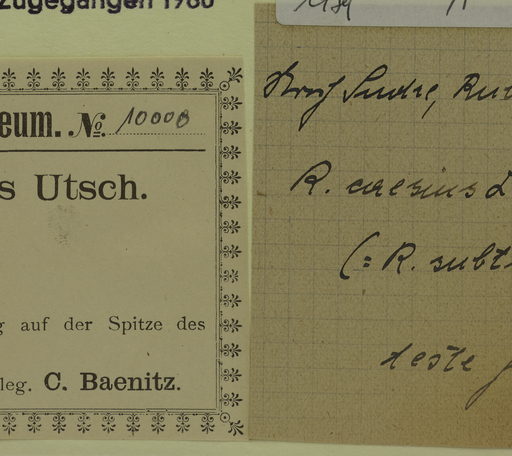 Zugegangen 1980
eum. No. 10008
s Utsch.
g auf der Spitze des
leg. C. Baenitz.
Sudre,
R. caesius L
(= R. subt
teste